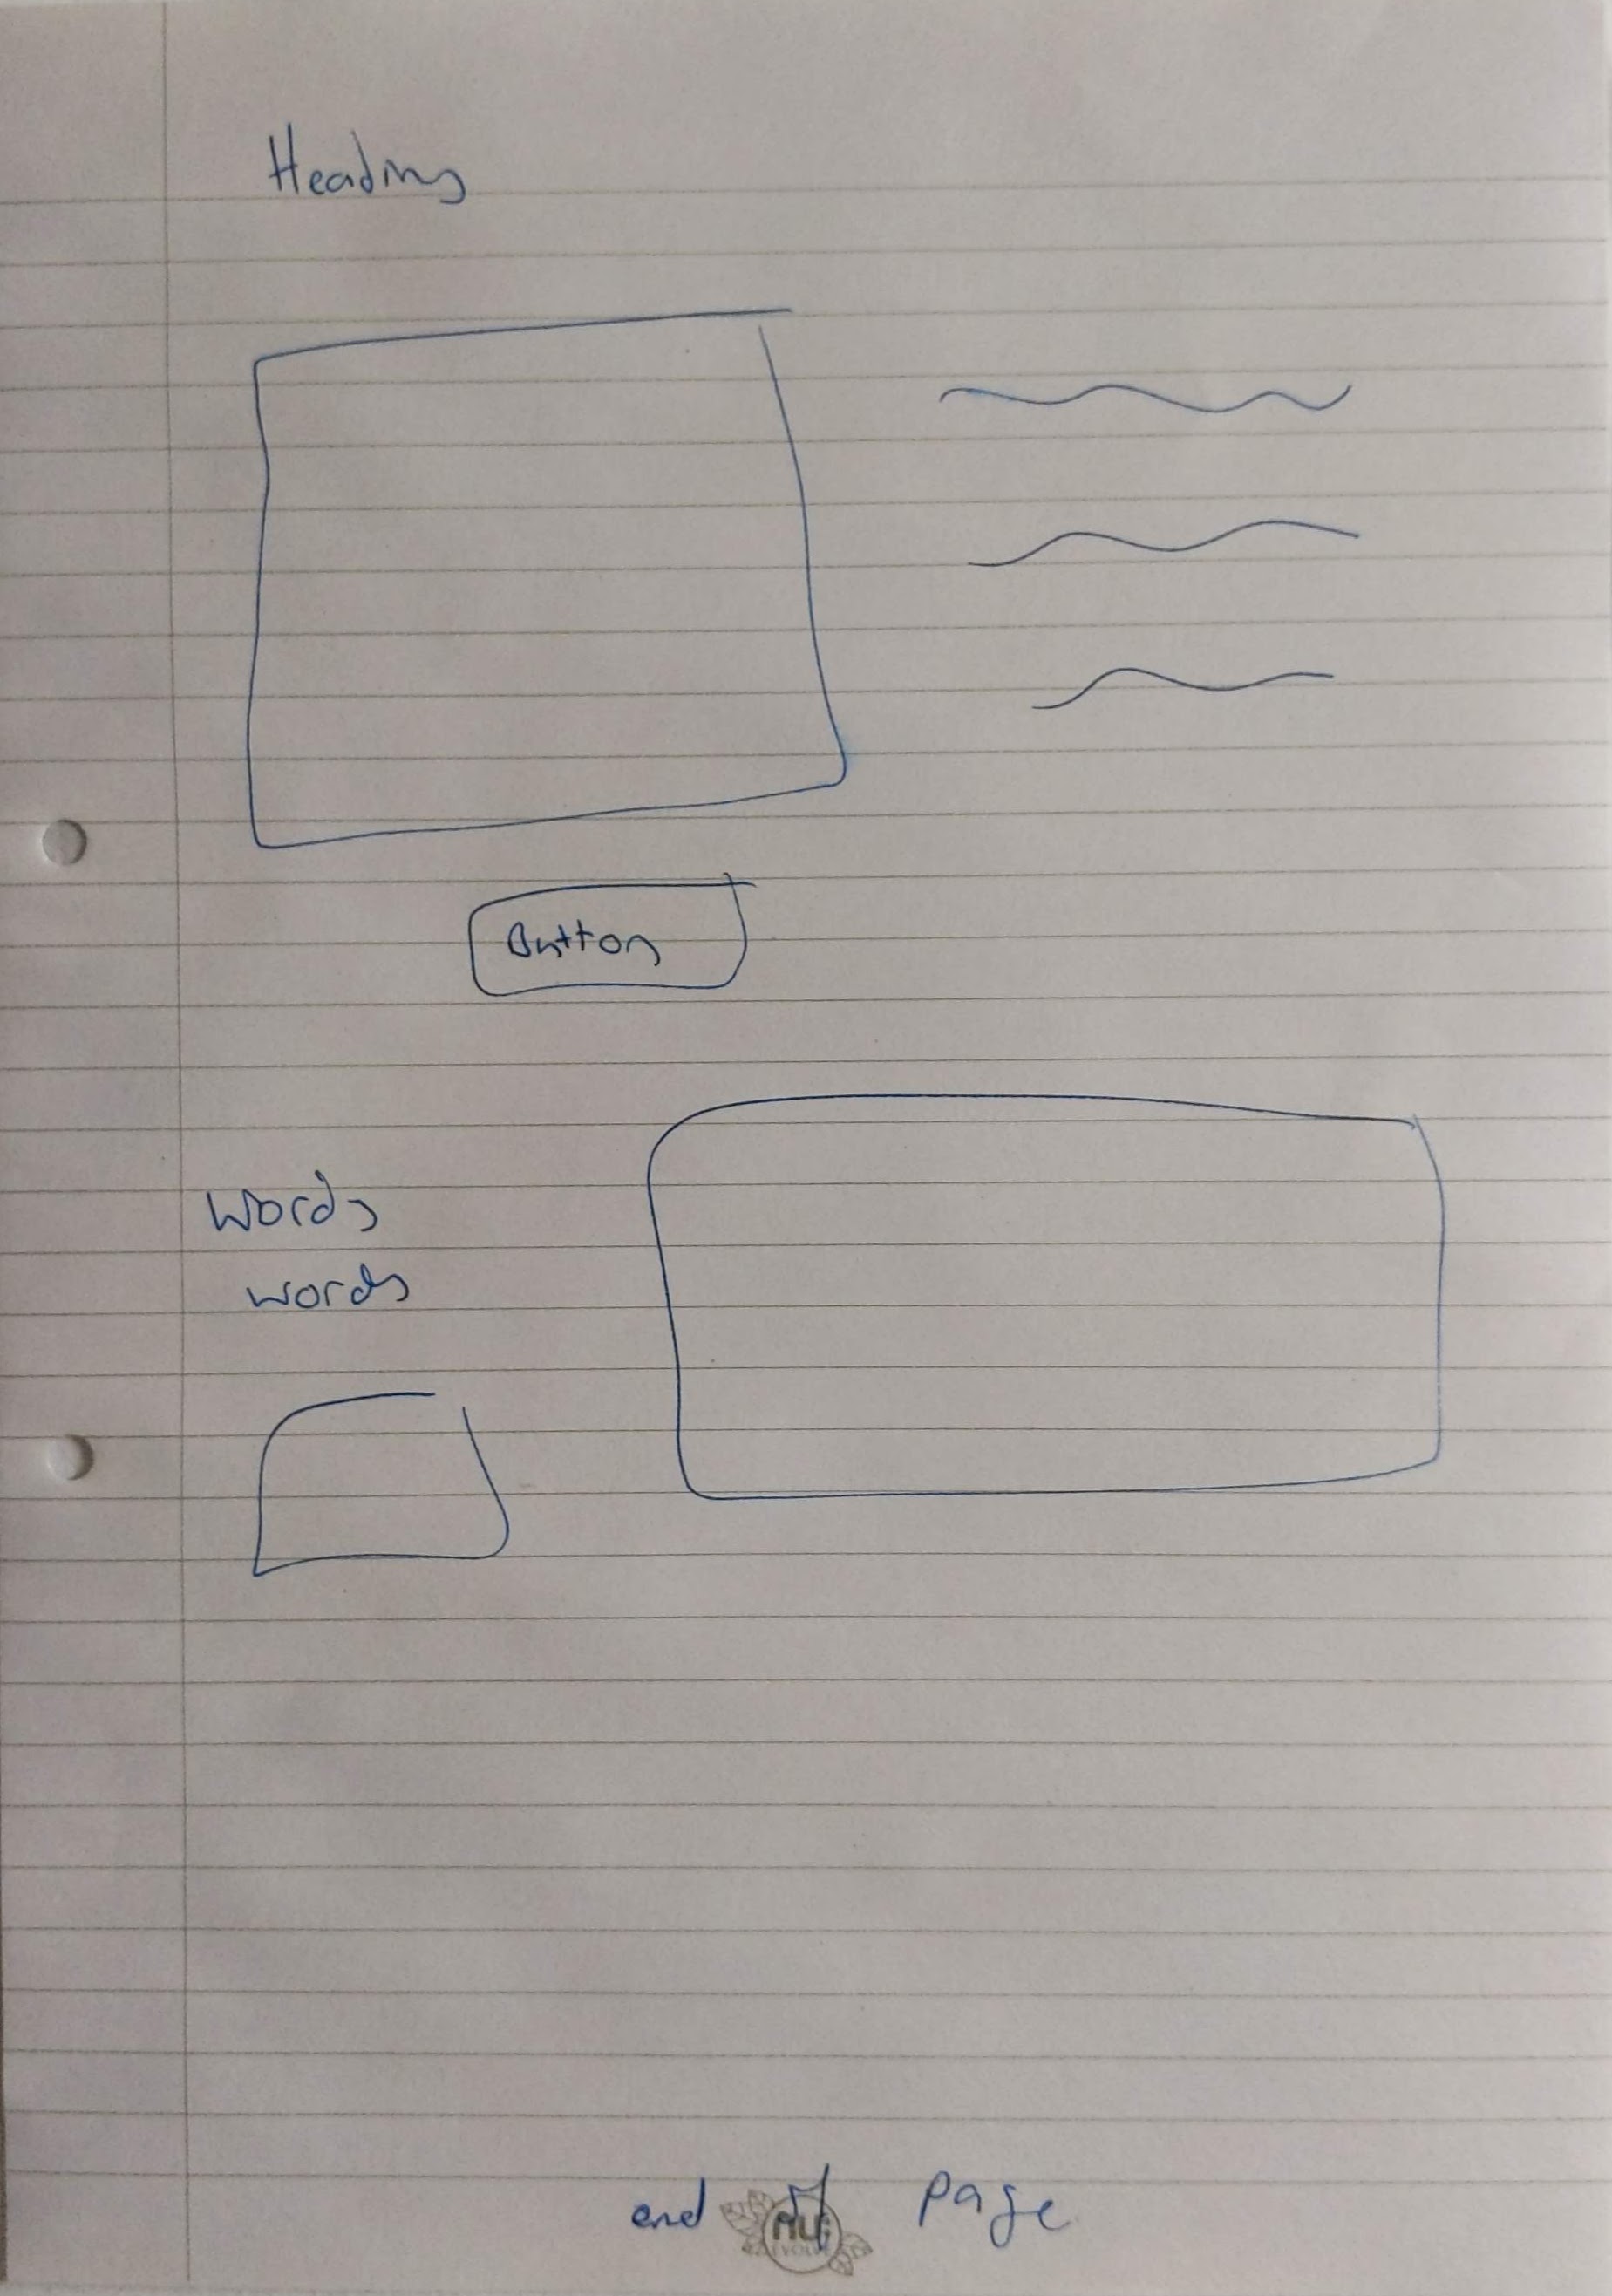 Heading
Button
Words
words
end of page